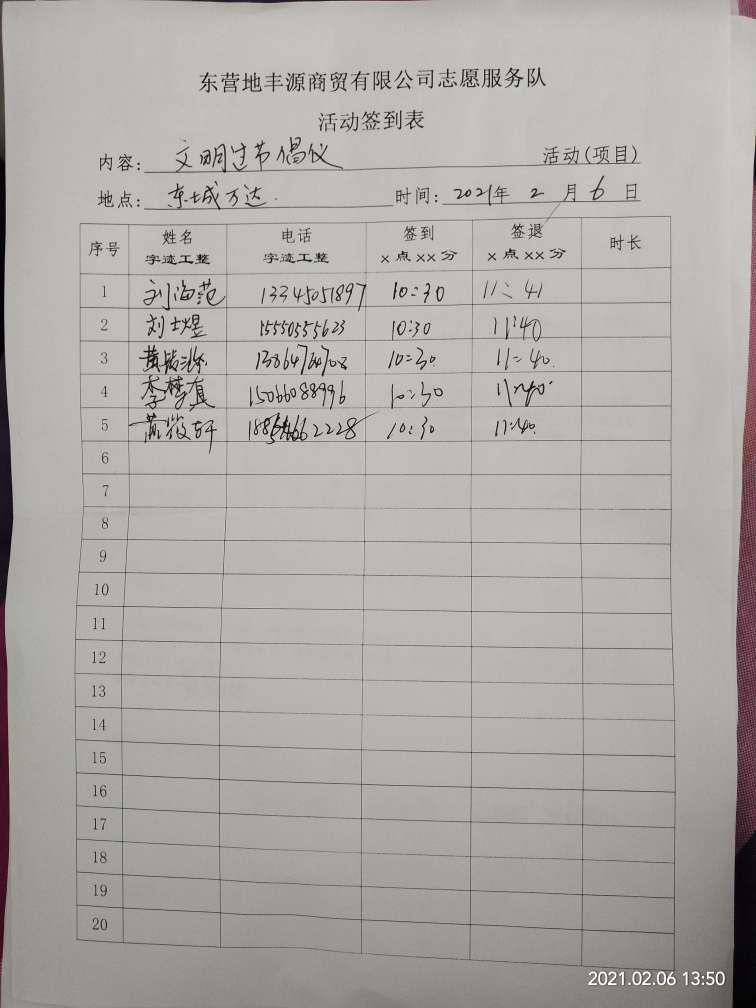 东营地丰源商贸有限公司志愿服务队
活动签到表
内容: 文明过节倡仪 活动(项目)
地点: 东城万达. 时间: 2021年 2 月 6 日
序号 姓名 电话 签到 签退 时长
字迹工整 字迹工整 x 点 xx 分 x 点 xx 分
1 刘海范 13345051897 10:30 11:41
2 刘士煜 15550555623 10:30 11:40
3 黄 10:30. 11:40.
4 李梦真 15066088996 10:30 11:40.
5 10:30 11:40.
6
7
8
9
10
11
12
13
14
15
16
17
18
19
20
2021.02.06 13:50